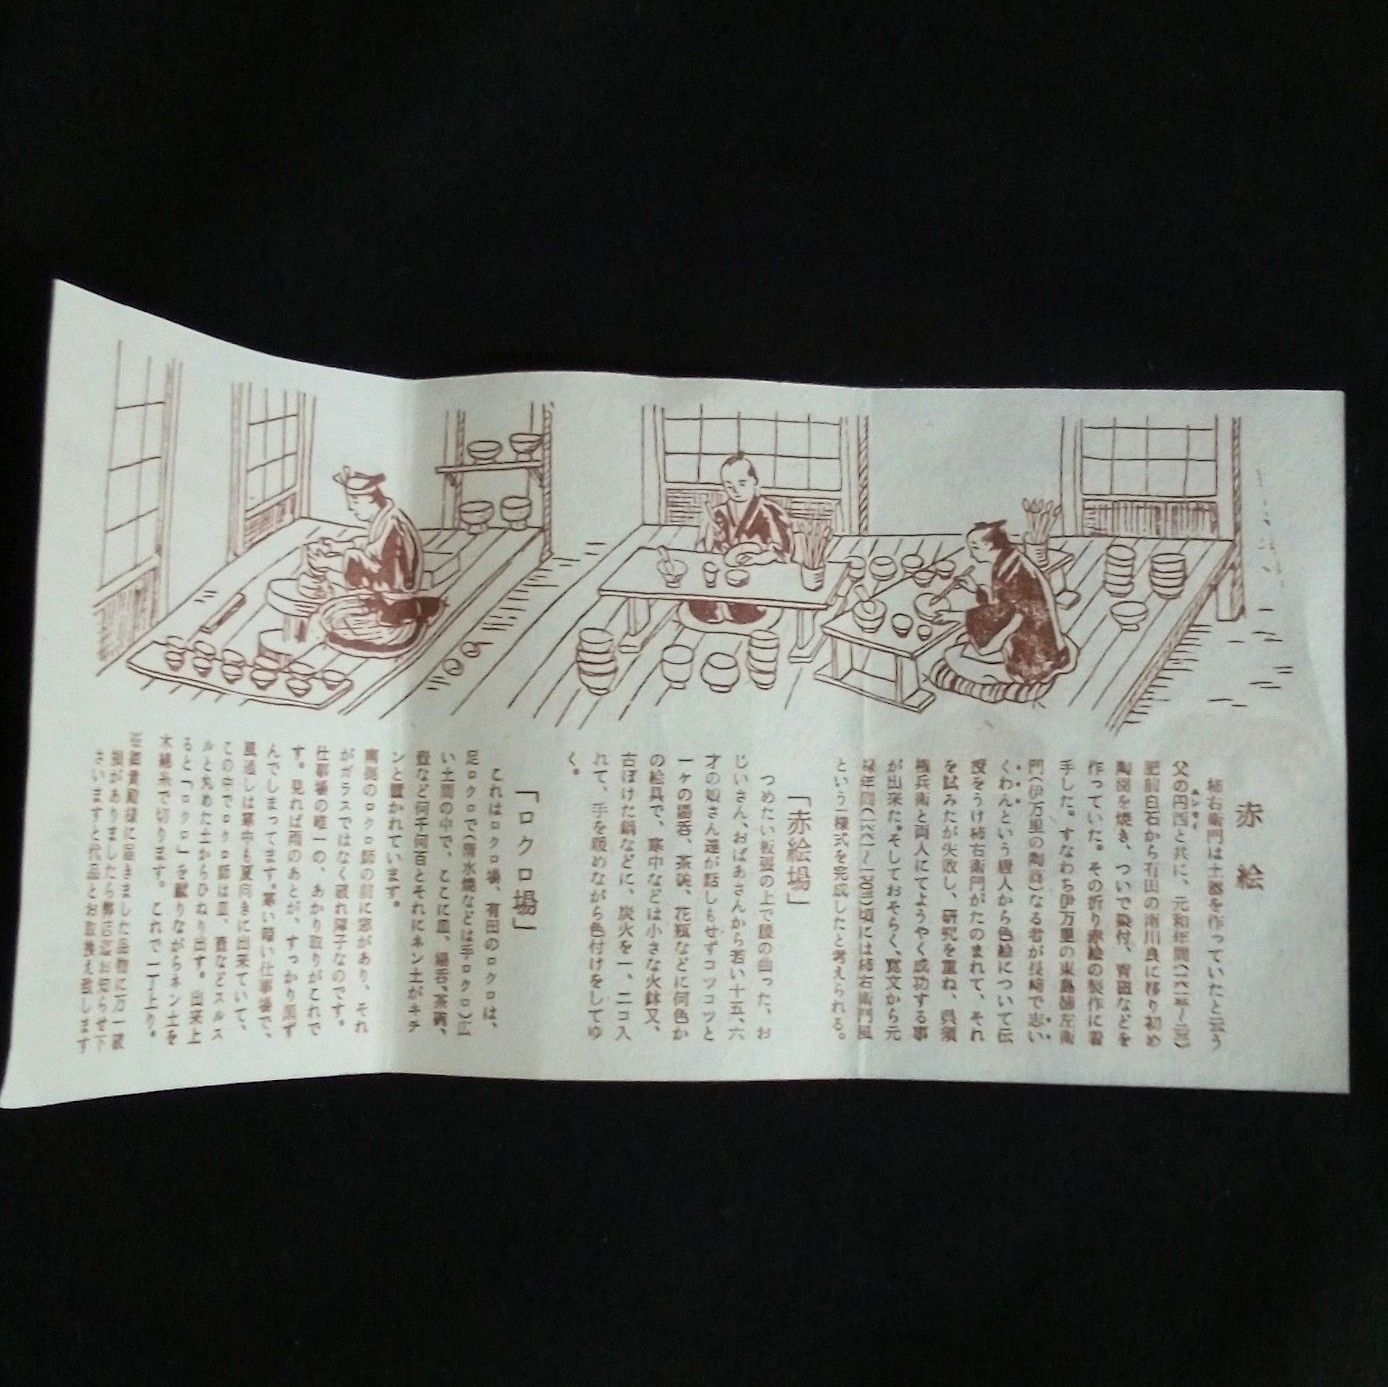 赤絵
柿右衛門は土器を作っていたと云う
父の円西と共に、元和年間
エンセイ
肥前白石から有田の南川良に移り初め
陶器を焼き、ついで染付、青磁などを
作っていた。その折り赤絵の製作に着
手した。すなわち伊万里の東島徳左衛
門(伊万里の陶商)なる者が長崎で志い
くわんという唐人から色絵について伝
授をうけ柿右衛門がたのまれて、それ
を試みたが失敗し、研究を重ね、呉須
権兵衛と両人にてようやく成功する事
が出来た。そしておそらく、寛文から元
禄年間頃には柿右衛門風
という一様式を完成したと考えられる。
「赤絵場」
つめたい板張の上で腰の曲った、お
じいさん、おばあさんから若い十五、六
才の娘さん達が話しもせずコツコツと
一ヶの湯呑、茶碗、花瓶などに何色か
の絵具で、寒中などは小さな火鉢又、
古ぼけた鍋などに、炭火を一、二コ入
れて、手を暖めながら色付けをしてゆ
く。
「ロクロ場」
これはロクロ場、有田のロクロは、
足ロクロで(清水焼などは手ロクロ)広
い土間の中で、ここに皿、湯呑、茶碗、
壺など何千何百とそれにネン土がキチ
ンと置かれています。
南側のロクロ師の前に窓があり、それ
がガラスではなく破れ障子なのです。
仕事場の唯一の、あかり取りがこれで
す。見れば雨のあとが、すっかり黒ず
んでしまってます。寒い暗い仕事場で、
風通しは寒中も夏向きに出来ていて、
この中でロクロ師は皿、壺などスルス
ルと丸めた土からひねり出す。出来上
ると「ロクロ」を蹴りながらネン土を
木綿糸で切ります。これで一丁上り。
貴殿様に届きました品物に万一破
損がありましたら弊店迄お知らせ下
さいますと代品とお取換え致します